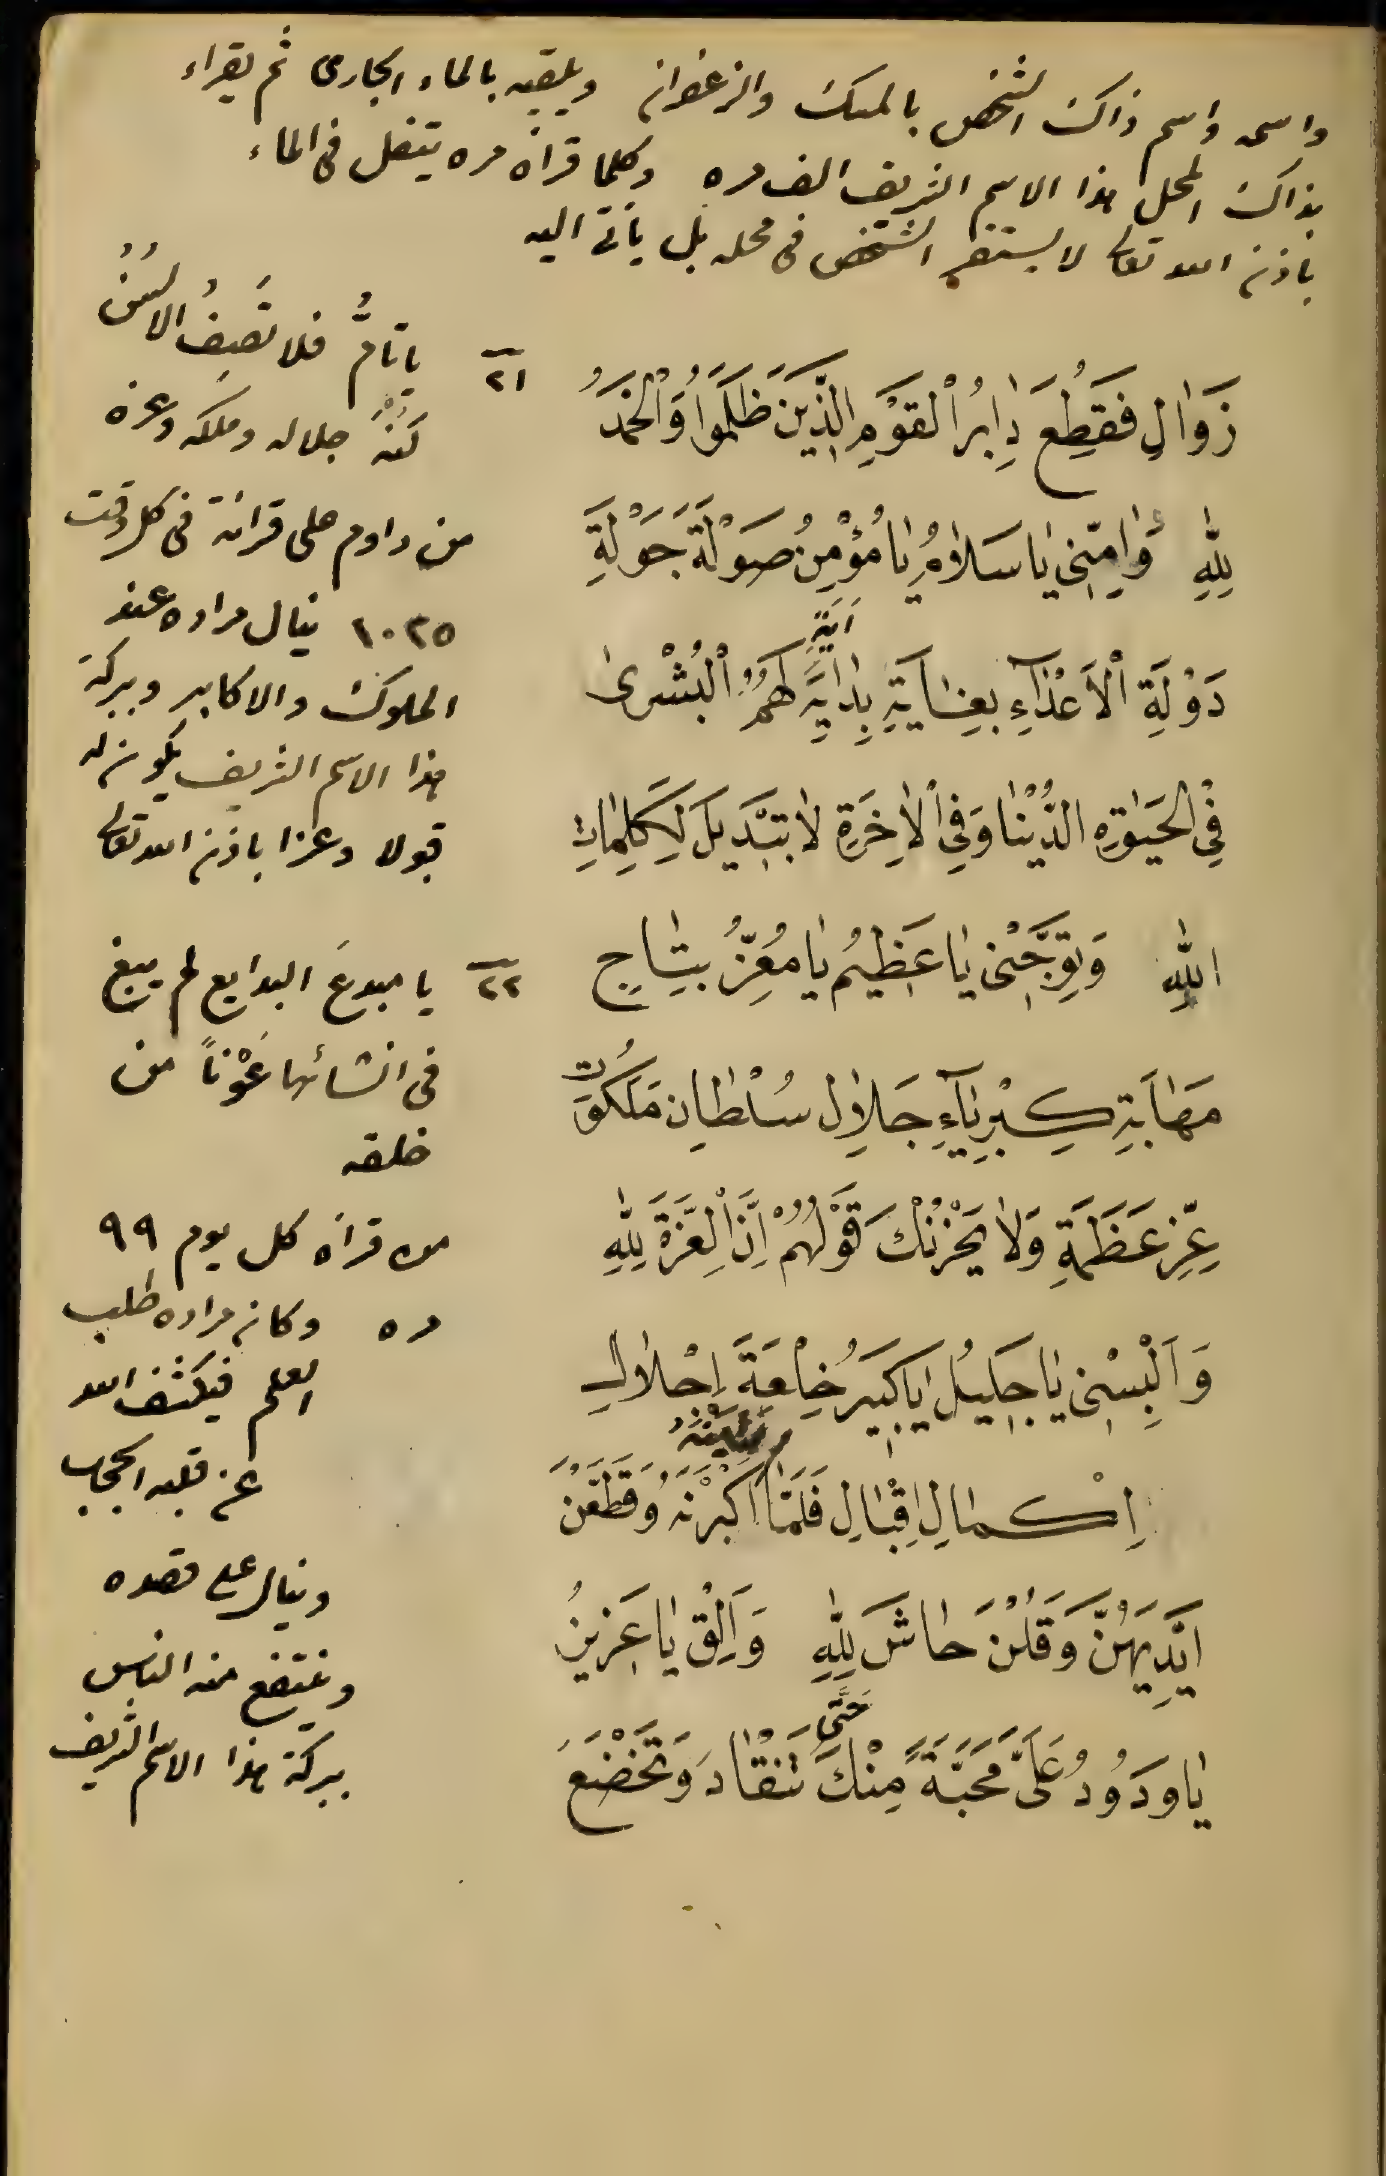 واسمه واسم ذاك الشخص بالمسك والزعفران ويلقيه بالماء الجارى ثم يقراء
بذاك المحل هذا الاسم الشريف الف مره وكلما قراه مره يتفل فى الماء
باذن الله تعالى لا يستقر الشخص فى محله بل يأتى اليه
زَوٰالٍ فَقُطِعَ دٰابِرُ الْقَوْمِ الَّذِينَ ظَلَمُوا وَالْحَمْدُ
لِلّٰهِ وَاٰمِنِّى يٰا سَلاٰمُ يٰا مُؤْمِنُ صَوْلَةَ جَوْلَةِ
دَوْلَةِ الْاَعْدٰآءِ بِغٰايَةِ بِدٰايَةِ اٰيَةِ لَهُمُ الْبُشْرىٰ
فِى الْحَيٰوةِ الدُّنْيٰا وَفِى الْاٰخِرَةِ لاٰ تَبْدِيلَ لِكَلِمٰاتِ
اللّٰهِ وَتَوِّجْنِى يٰا عَظِيمُ يٰا مُعِزُّ بِتٰاجِ
مَهٰابَةِ كِبْرِيٰآءِ جَلاٰلِ سُلْطٰانِ مَلَكُوتِ
عِزِّ عَظَمَةِ وَلاٰ يَحْزُنْكَ قَوْلُهُمْ اِنَّ الْعِزَّةَ لِلّٰهِ
وَاَلْبِسْنِى يٰا جَلِيلُ يٰا كَبِيرُ خِلْعَةَ اِجْلاٰلِ
اِكْمٰالِ اِقْبٰالِ فَلَمّٰا رَاَيْنَهُ اَكْبَرْنَهُ وَقَطَّعْنَ
اَيْدِيَهُنَّ وَقُلْنَ حٰاشَ لِلّٰهِ وَاَلْقِ يٰا عَزِيزُ
يٰا وَدُودُ عَلَىَّ مَحَبَّةً مِنْكَ حَتّٰى تَنْقٰادَ وَتَخْضَعَ
٢١ يا تامُّ فلا تَصِفُ الالسُنُ
كُنْهَ جلاله وملكه وعزه
من داوم على قرائة فى كل وقت
١٠٣٥ ينال مراده عند
الملوك والاكابر وببركة
هذا الاسم الشريف يكون له
قبولا وعزا باذن الله تعالى
٢٢ يا مبدعَ البدايع لم يبغ
فى انشائها عَوْناً من
خلقه
من قراه كل يوم ٩٩
مره وكان مراده طلب
العلم فيكشف الله
عن قلبه الحجاب
وينال على قصده
وينتفع منه الناس
ببركة هذا الاسم الشريف